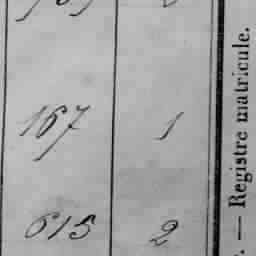 167 1
615 2
— Registre matricule.